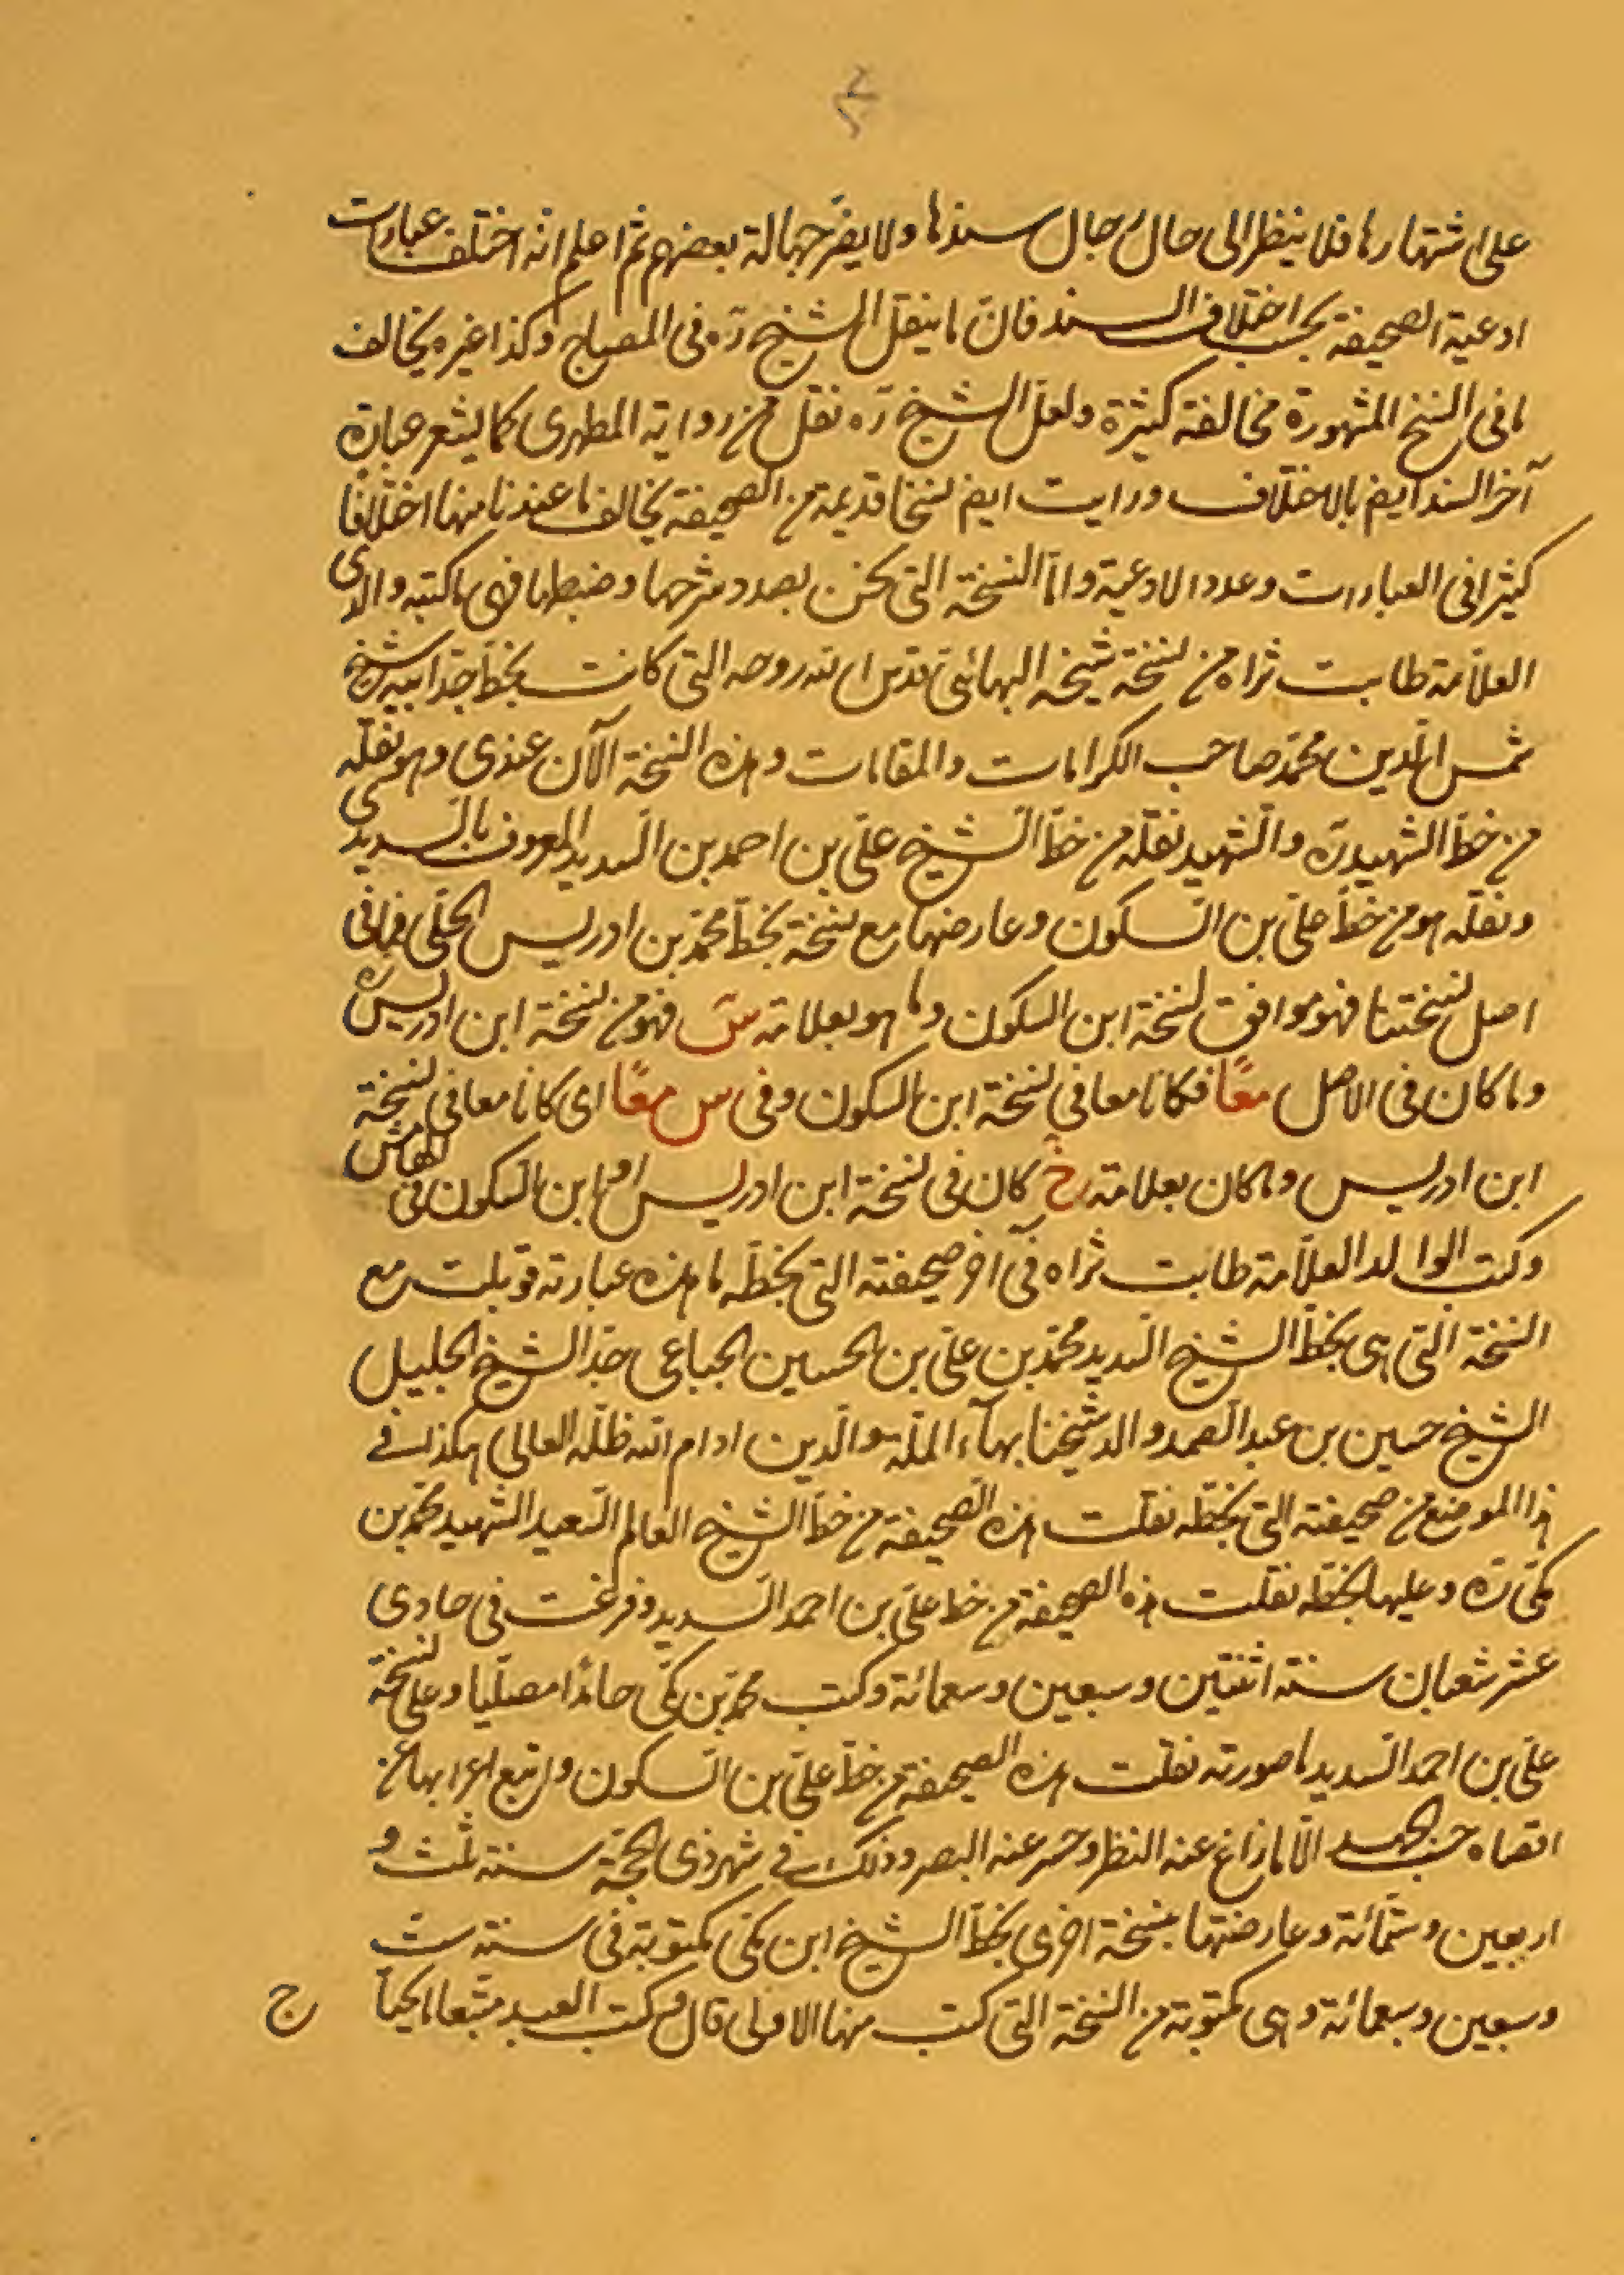 على اشتهارها فلا ينظر الى حال رجال سندها ولا يضر جهالة بعضهم ثم اعلم انه اختلف عبارات
ادعية الصحيفة بحسب اختلاف السند فان ما ينقل الشيخ ره فى المصباح وكذا غيره يخالف
ما فى النسخ المشهورة مخالفة كثيرة ولعل الشيخ ره نقل من رواية المطهرى كما يشعر عبارة
آخر السند ايض بالاختلاف ورايت ايض نسخا قديمة من الصحيفة يخالف ما عندنا منها اختلافا
كثيرا فى العبارات وعدد الادعية واما النسخة التى نحن بصدد شرحها وضبطها فهى ما كتبه والدى
العلامة طابت ثراه من نسخة شيخه البهائى قدس الله روحه التى كانت بخط جد ابيه الشيخ
شمس الدين محمد صاحب الكرامات والمقامات وهذه النسخة الآن عندى وهو نقله
من خط الشهيد ره والشهيد نقله من خط الشيخ على بن احمد بن السديد المعروف بالسديدى
ونقله هو من خط على بن السكون وعارضها مع نسخة بخط محمد بن ادريس الحلى فما فى
اصل نسختنا فهو موافق لنسخة ابن السكون وما هو بعلامته س فهو من نسخة ابن ادريس ره
وما كان فى الاصل معًا فكانا معا فى نسخة ابن السكون وفى س معًا اى كانا معا فى نسخة
ابن ادريس وما كان بعلامته خ كان فى نسخة ابن ادريس او ابن السكون فى الهامش
وكتب الوالد العلامة طابت ثراه فى آخر صحيفته التى بخطه ما هذه عبارته قوبلت مع
النسخة التى هى بخط الشيخ السديد محمد بن على بن الحسين الجباعى جد الشيخ الجليل
الشيخ حسين بن عبد الصمد والد شيخنا بهآء الملة والدين ادام الله ظله العالى هكذا فى
هذا الموضع من صحيفته التى بخطه نقلت هذه الصحيفة من خط الشيخ العالم السعيد الشهيد محمد بن
مكى ره وعليها بخطه نقلت هذه الصحيفة من خط على بن احمد السديد وفرغت فى حادى
عشر شعبان سنة اثنتين وسبعين وسبعمائة وكتب محمد بن مكى حامدا مصليا وعلى نسخة
على بن احمد السديد ما صورته نقلت هذه الصحيفة من خط على بن السكون واتبع اعرابها عن
اقصاه حسب الجهد الا ما زاغ عنه النظر وحسر عنه البصر وذلك فى شهر ذى الحجة سنة ثلث و
اربعين وستمائة وعارضتها بنسخة اخرى بخط الشيخ ابن مكى مكتوبة فى سنة ست
وسبعين وسبعمائة وهى مكتوبة من النسخة التى كتب منها الاولى قال وكتب العبد متبعا
ج